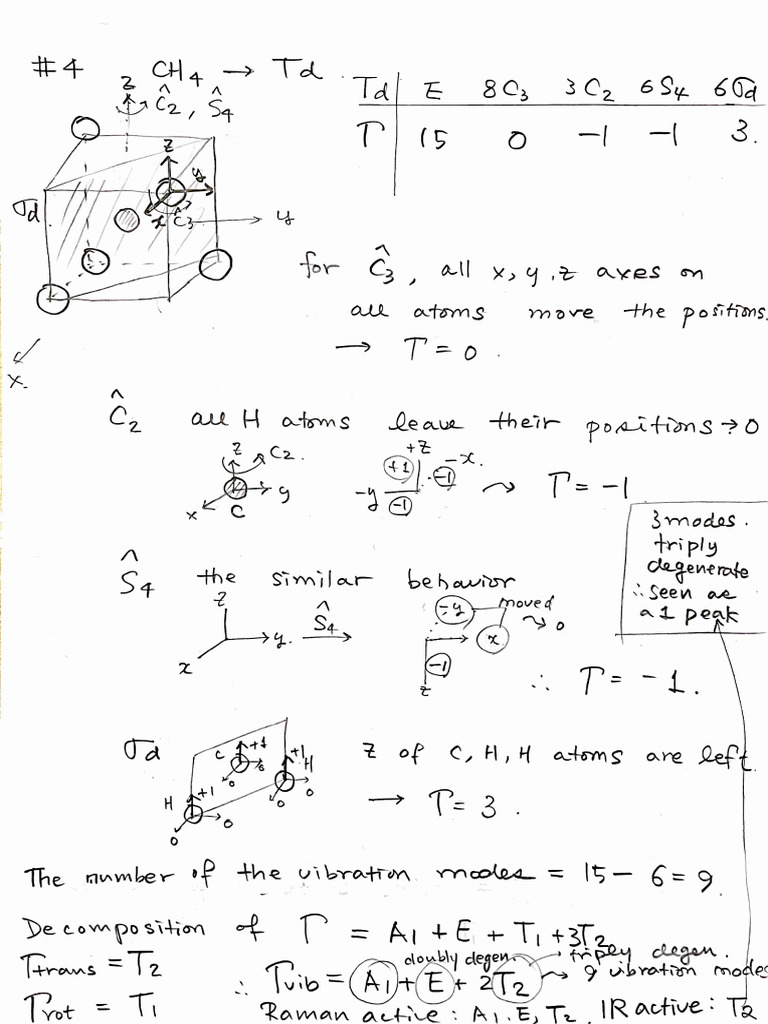 #4 CH4 → Td.
Td E 8C3 3C2 6S4 6σd
Γ 15 0 -1 -1 3.
z
Ĉ2, Ŝ4
z
y
σd
x Ĉ3
y
x.
for Ĉ3, all x, y, z axes on
all atoms move the positions.
→ Γ = 0.
Ĉ2 all H atoms leave their positions → 0
z C2.
y
x C
+z
+1 -x.
-y -1 -1
⇝ Γ = -1
3 modes.
triply
degenerate
∴ seen as
a 1 peak
Ŝ4 the similar behavior
z
y. Ŝ4 →
x
-y moved
x ⇝ 0
-1
z
∴ Γ = -1.
σd
C +1
+1 H
H +1
0 0 0 0 0
z of C, H, H atoms are left
→ Γ = 3.
The number of the vibration modes = 15 - 6 = 9.
Decomposition of Γ = A1 + E + T1 + 3T2
doubly degen. triply degen.
Γtrans = T2
∴ Γvib = A1 + E + 2T2 → 9 vibration modes
Γrot = T1
Raman active: A1, E, T2. IR active: T2